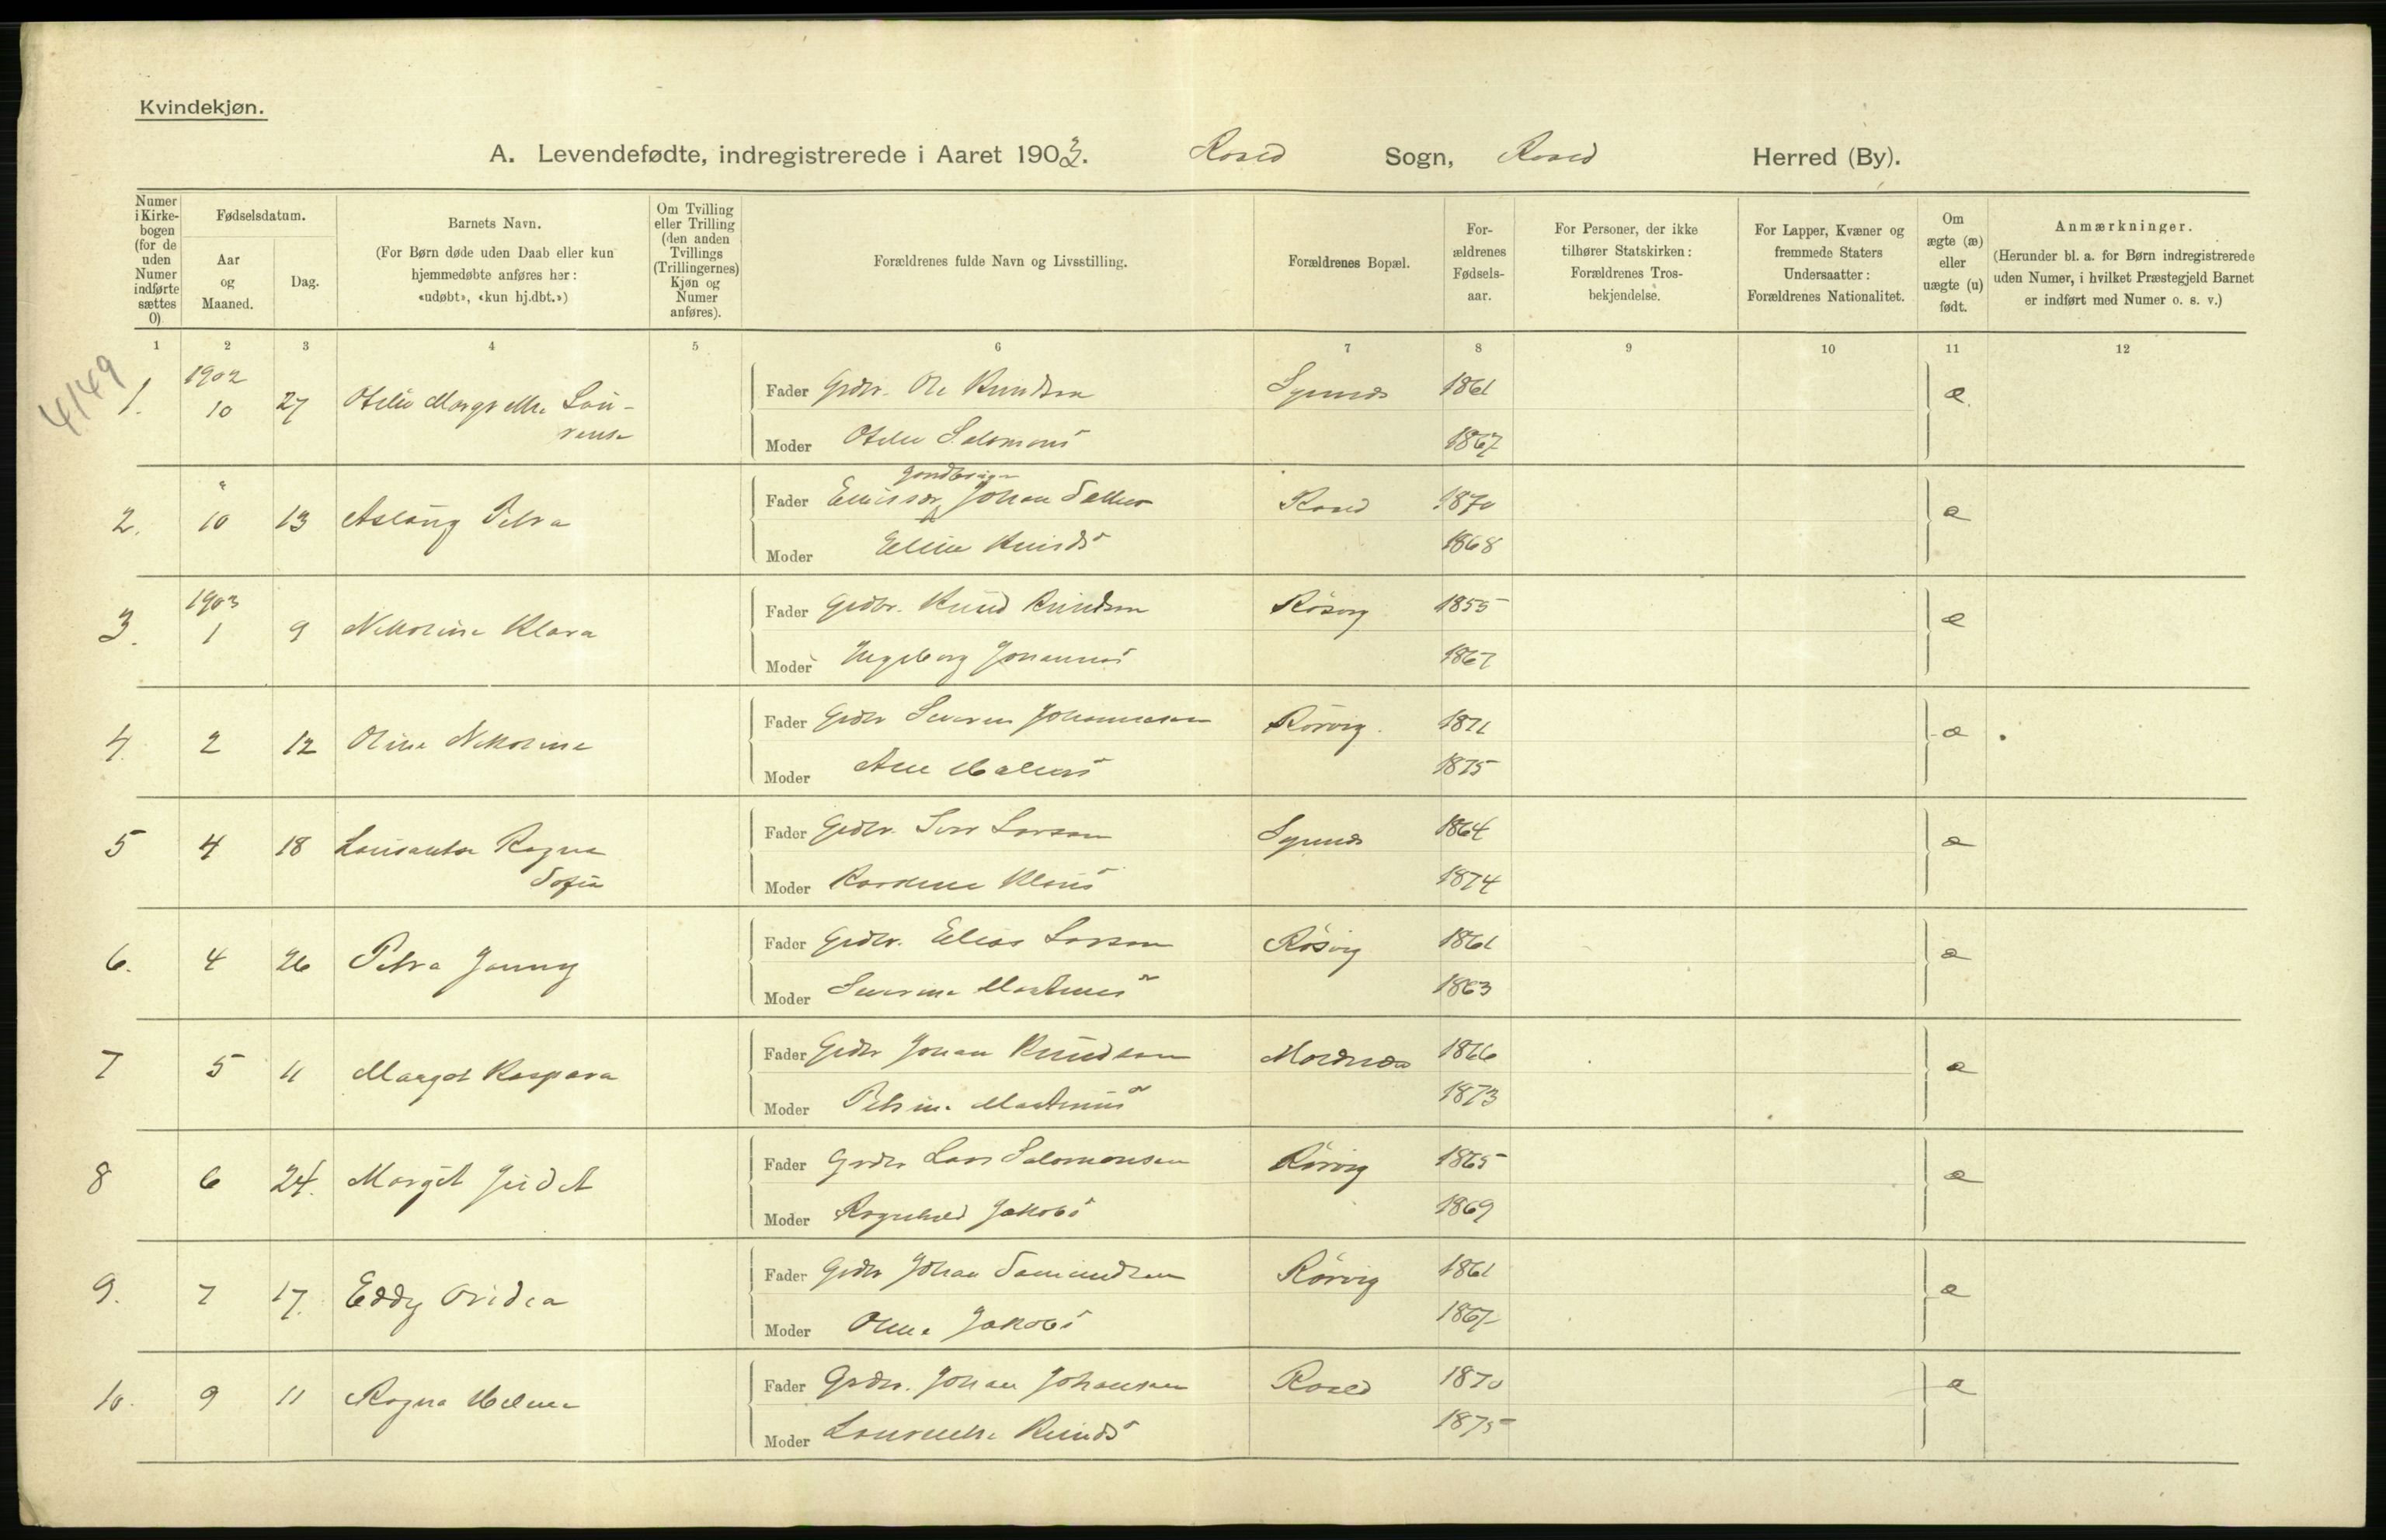 Kvindekjøn.
A. Levendefødte, indregistrerede i Aaret 1903. Roald Sogn, Roald Herred (By).
Numer i Kirkebogen (for de uden Numer indførte sættes 0)
Fødselsdatum.
Aar og Maaned.
Dag.
Barnets Navn.
(For Børn døde uden Daab eller kun hjemmedøbte anføres her: «udøbt», «kun hj.dbt.»)
Om Tvilling eller Trilling (den anden Tvillings (Trillingernes) Kjøn og Numer anføres).
Forældrenes fulde Navn og Livsstilling.
Forældrenes Bopæl.
Forældrenes Fødselsaar.
For Personer, der ikke tilhører Statskirken: Forældrenes Trosbekjendelse.
For Lapper, Kvæner og fremmede Staters Undersaatter: Forældrenes Nationalitet.
Om ægte (æ) eller uægte (u) født.
Anmærkninger.
(Herunder bl. a. for Børn indregistrerede uden Numer, i hvilket Præstegjeld Barnet er indført med Numer o. s. v.)
1 2 3 4 5 6 7 8 9 10 11 12
4149
1. 1902 10 27 Otelie
Fader Grdbr. Ole Knudsen 1861 æ.
Moder Otelie Salomons 1867
2. " 10 13 Aslaug Petra
Fader Emissær Johan Roald 1870 æ
Moder Knuds 1868
3. 1903 1 9 Nikoline Klara
Fader Grdbr. Knud Knudsen Rösvig 1855 æ
Moder Ingeborg Johannes 1867
4. 2 12 Oline Nikoline
Fader Grdbr Severin Johannesen Rörvig. 1871 æ
Moder 1875
5 4 18 Ragna Sofia
Fader Grdbr. Larsen 1864 æ
Moder Klaus 1874
6. 4 26 Petra Jenny
Fader Grdbr. Elias Larsen Rösvig 1861 æ
Moder Severine Martinus 1863
7 5 11 Margot Kaspara
Fader Grdbr Johan Knudsen Molnæs 1866 æ
Moder Petrine Martinus 1873
8 6 24. Margit Judit
Fader Grdbr Lars Salomonsen Rörvig 1865 æ
Moder Ragnhild Jakobs 1869
9. 7 17. Eddy Ovidia
Fader Grdbr Johan Samundsen Rörvig 1861 æ
Moder Oline Jakobs 1867
10. 9 11 Ragna
Fader Grdbr. Johan Johansen Roald 1870 æ
Moder Knuds 1875